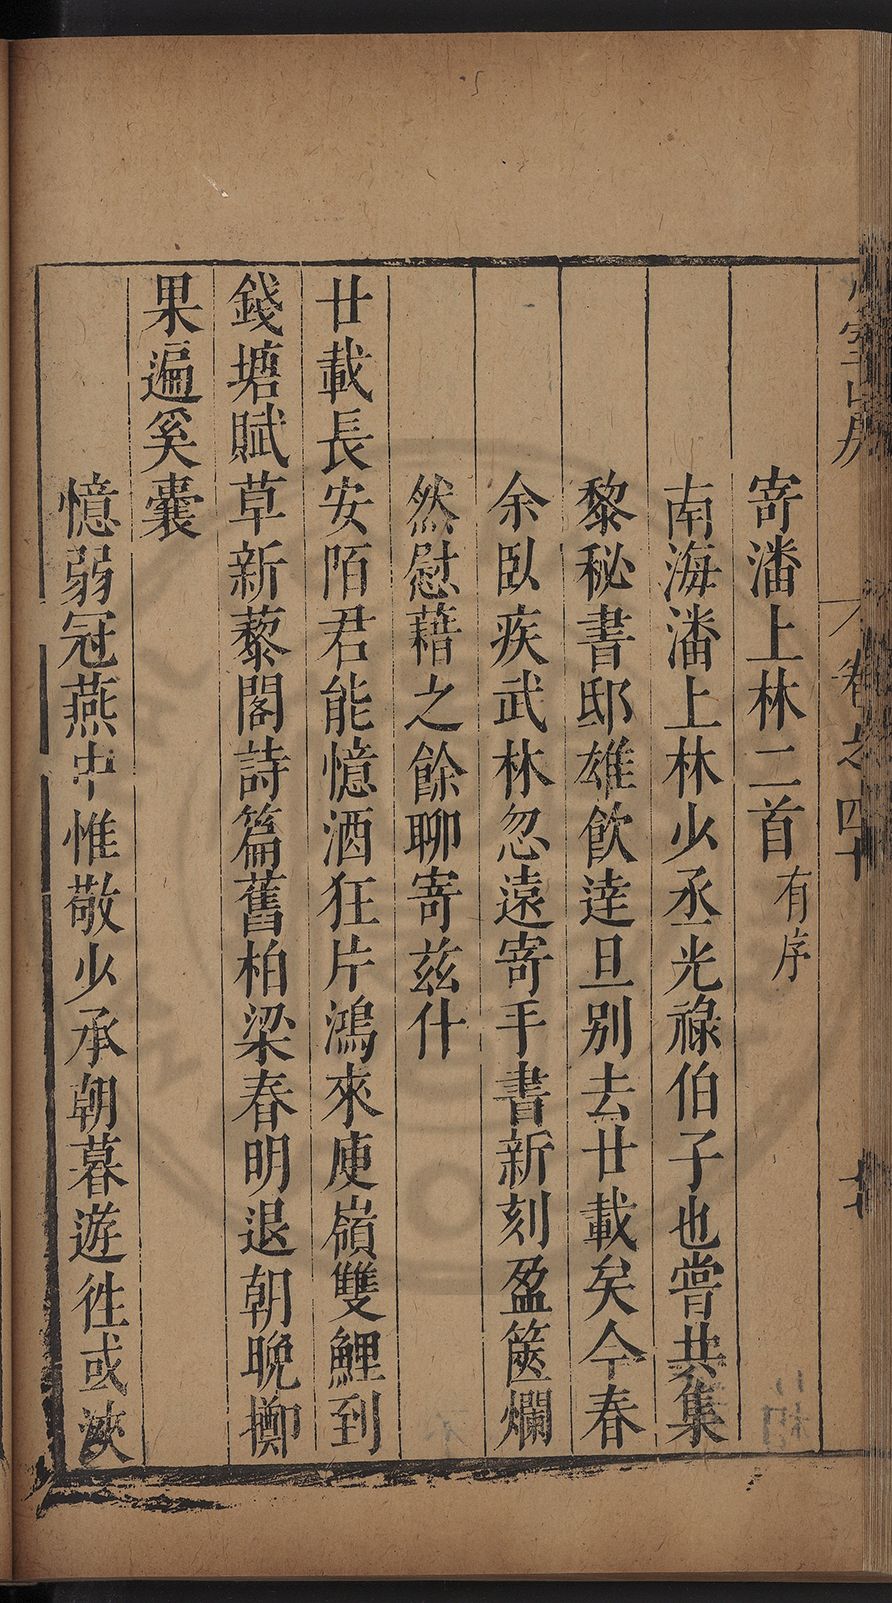 寄潘上林二首有序
南海潘上林少丞光祿伯子也嘗共集
黎秘書邸雄飲達旦別去廿載矣今春
余臥疾武林忽遠寄手書新刻盈篋爛
然慰藉之餘聊寄茲什
廿載長安陌君能憶酒狂片鴻來庾嶺雙鯉到
錢塘賦草新藜閣詩篇舊柏梁春明退朝晚擲
果遍奚囊
憶弱冠燕中惟敬少承朝暮遊徃或浹